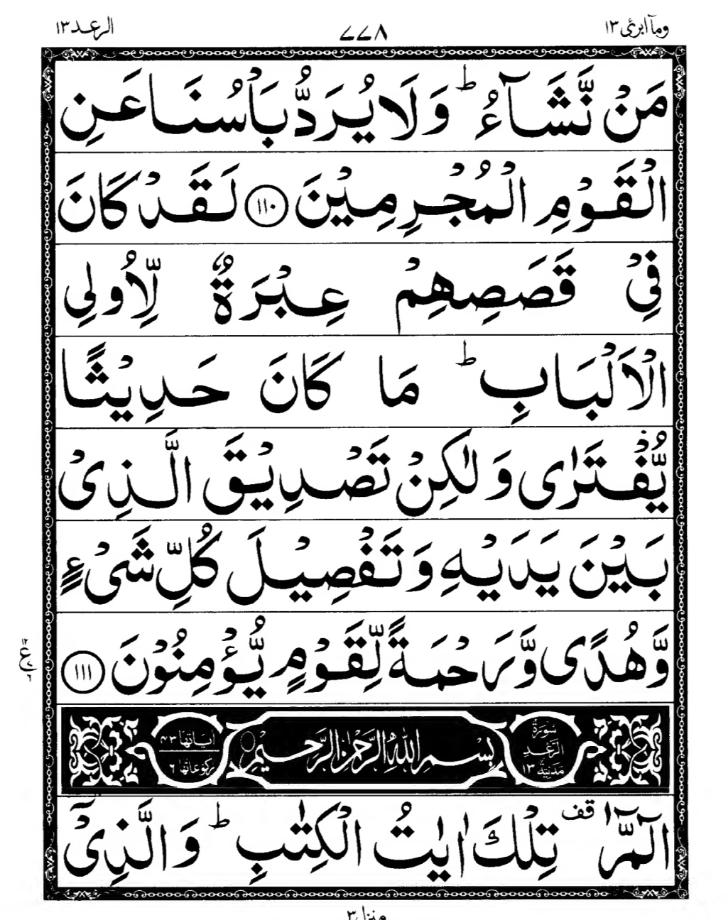 وما ابرئ ١٣
٧٧٨
الرعد ١٣
مَنْ نَّشَآءُ ؕ وَلَا يُرَدُّ بَاْسُنَا عَنِ
الْقَوْمِ الْمُجْرِمِيْنَ ﴿۱۱۰﴾ لَقَدْ كَانَ
فِيْ قَصَصِهِمْ عِبْرَةٌ لِّاُولِي
الْاَلْبَابِ ؕ مَا كَانَ حَدِيْثًا
يُّفْتَرٰى وَلٰكِنْ تَصْدِيْقَ الَّذِيْ
بَيْنَ يَدَيْهِ وَتَفْصِيْلَ كُلِّ شَيْءٍ
وَّهُدًى وَّرَحْمَةً لِّقَوْمٍ يُّؤْمِنُوْنَ ﴿۱۱۱﴾
ع
سُوْرَةُ الرَّعْدِ مَدَنِيَّةٌ ١٣
بِسْمِ اللّٰهِ الرَّحْمٰنِ الرَّحِيْمِ
اٰيَاتُهَا ٤٣
رُكُوْعَاتُهَا ٦
الٓمّٓرٰ قف تِلْكَ اٰيٰتُ الْكِتٰبِ ؕ وَالَّذِيْٓ
منزل ٣